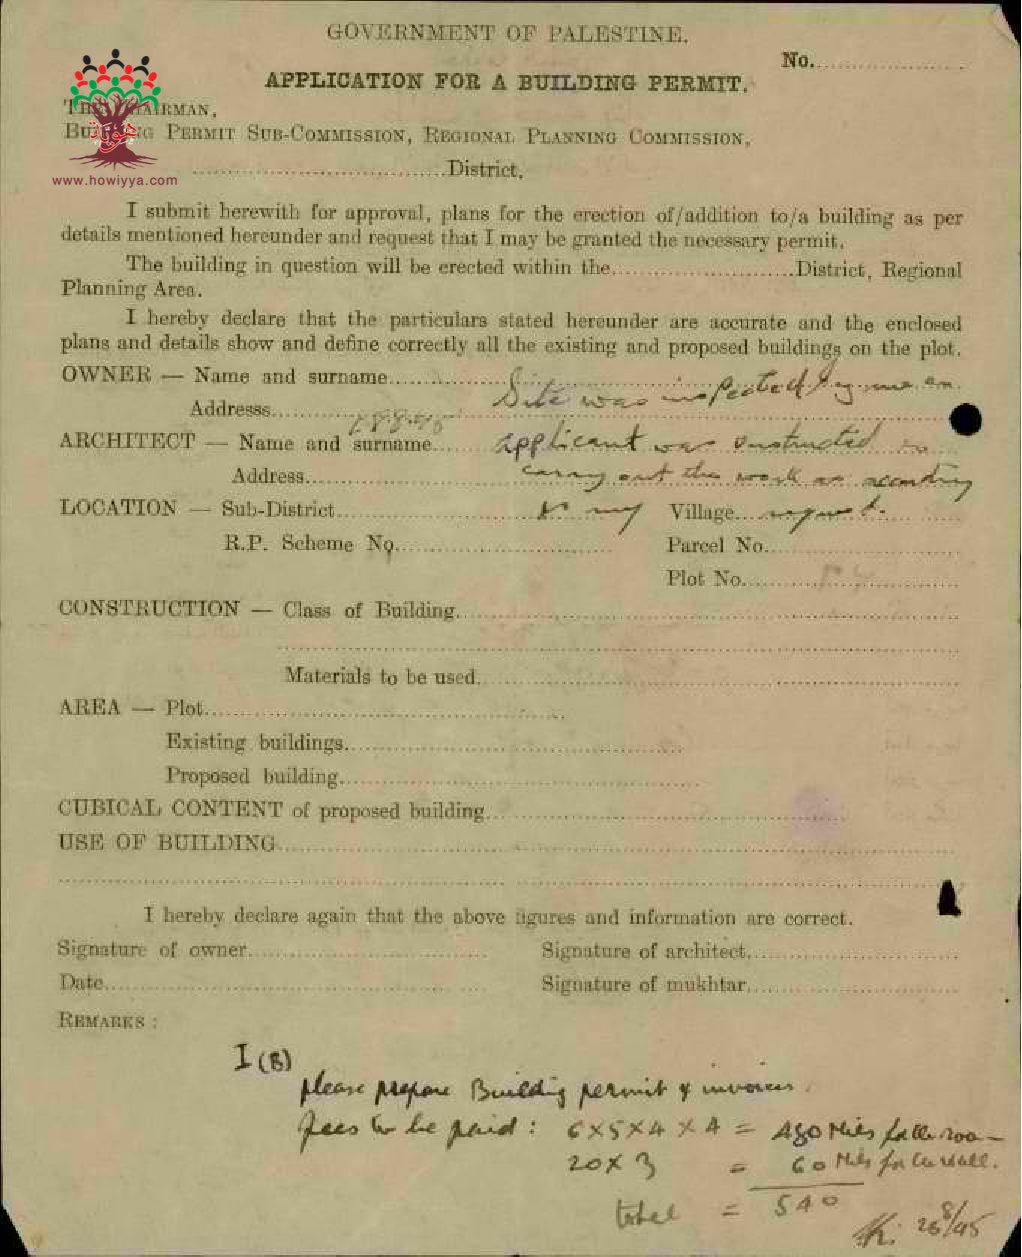 GOVERNMENT OF PALESTINE.
No.
APPLICATION FOR A BUILDING PERMIT.
THE CHAIRMAN,
BUILDING PERMIT SUB-COMMISSION, REGIONAL PLANNING COMMISSION,
District.
هوية
www.howiyya.com
I submit herewith for approval, plans for the erection of/addition to/a building as per
details mentioned hereunder and request that I may be granted the necessary permit.
The building in question will be erected within the District, Regional
Planning Area.
I hereby declare that the particulars stated hereunder are accurate and the enclosed
plans and details show and define correctly all the existing and proposed buildings on the plot.
OWNER — Name and surname
Site was inspected by me on
Addresss
ARCHITECT — Name and surname
applicant was instructed
Address
carry out the work as according
LOCATION — Sub-District to my Village request.
R.P. Scheme No. Parcel No.
Plot No.
CONSTRUCTION — Class of Building
Materials to be used
AREA — Plot
Existing buildings
Proposed building
CUBICAL CONTENT of proposed building
USE OF BUILDING
I hereby declare again that the above figures and information are correct.
Signature of owner Signature of architect
Date Signature of mukhtar
REMARKS :
I (B)
please prepare Building permit & invoices.
fees to be paid : 6×5×4×4 = 480 Mils for the room
20×3 = 60 Mils for the wall.
total = 540
28/8/45